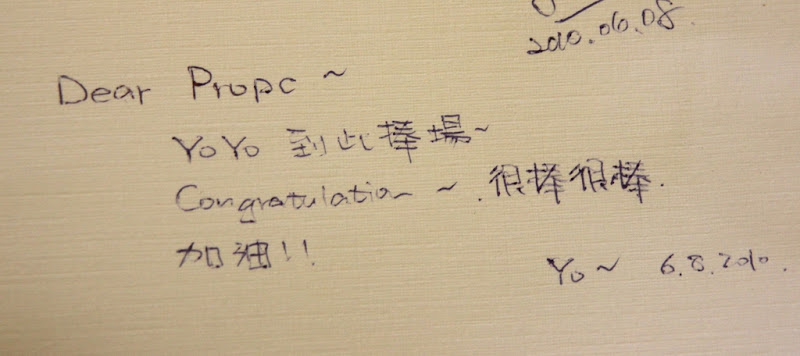 2010.06.08.
Dear Propc ~
YoYo 到此捧場~
Congratulation ~ 很棒很棒.
加油!!
Yo ~ 6.8.2010.